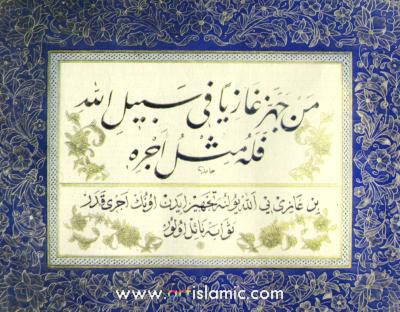 مَنْ جَهَّزَ غَازِيًا فِي سَبِيلِ اللّٰه
فَلَهُ مِثْلُ اَجْرِهِ
حامد
بر غازى يى الله يولنه تجهيز ايدن اونك اجرى قدر
ثوابه نائل اولور
www.artislamic.com